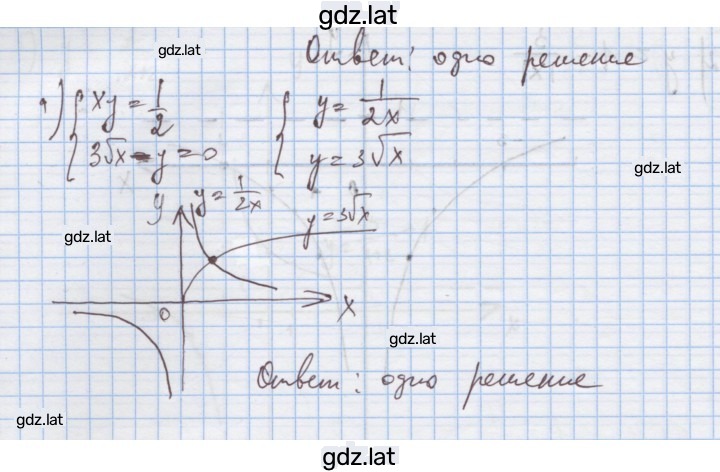 gdz.lat
gdz.lat
Ответ: одно решение
г) { xy = 1/2 { y = 1/2x
{ 3√x - y = 0 { y = 3√x
gdz.lat
y y = 1/2x y = 3√x
gdz.lat
0 x
gdz.lat
Ответ: одно решение
gdz.lat
gdz.lat